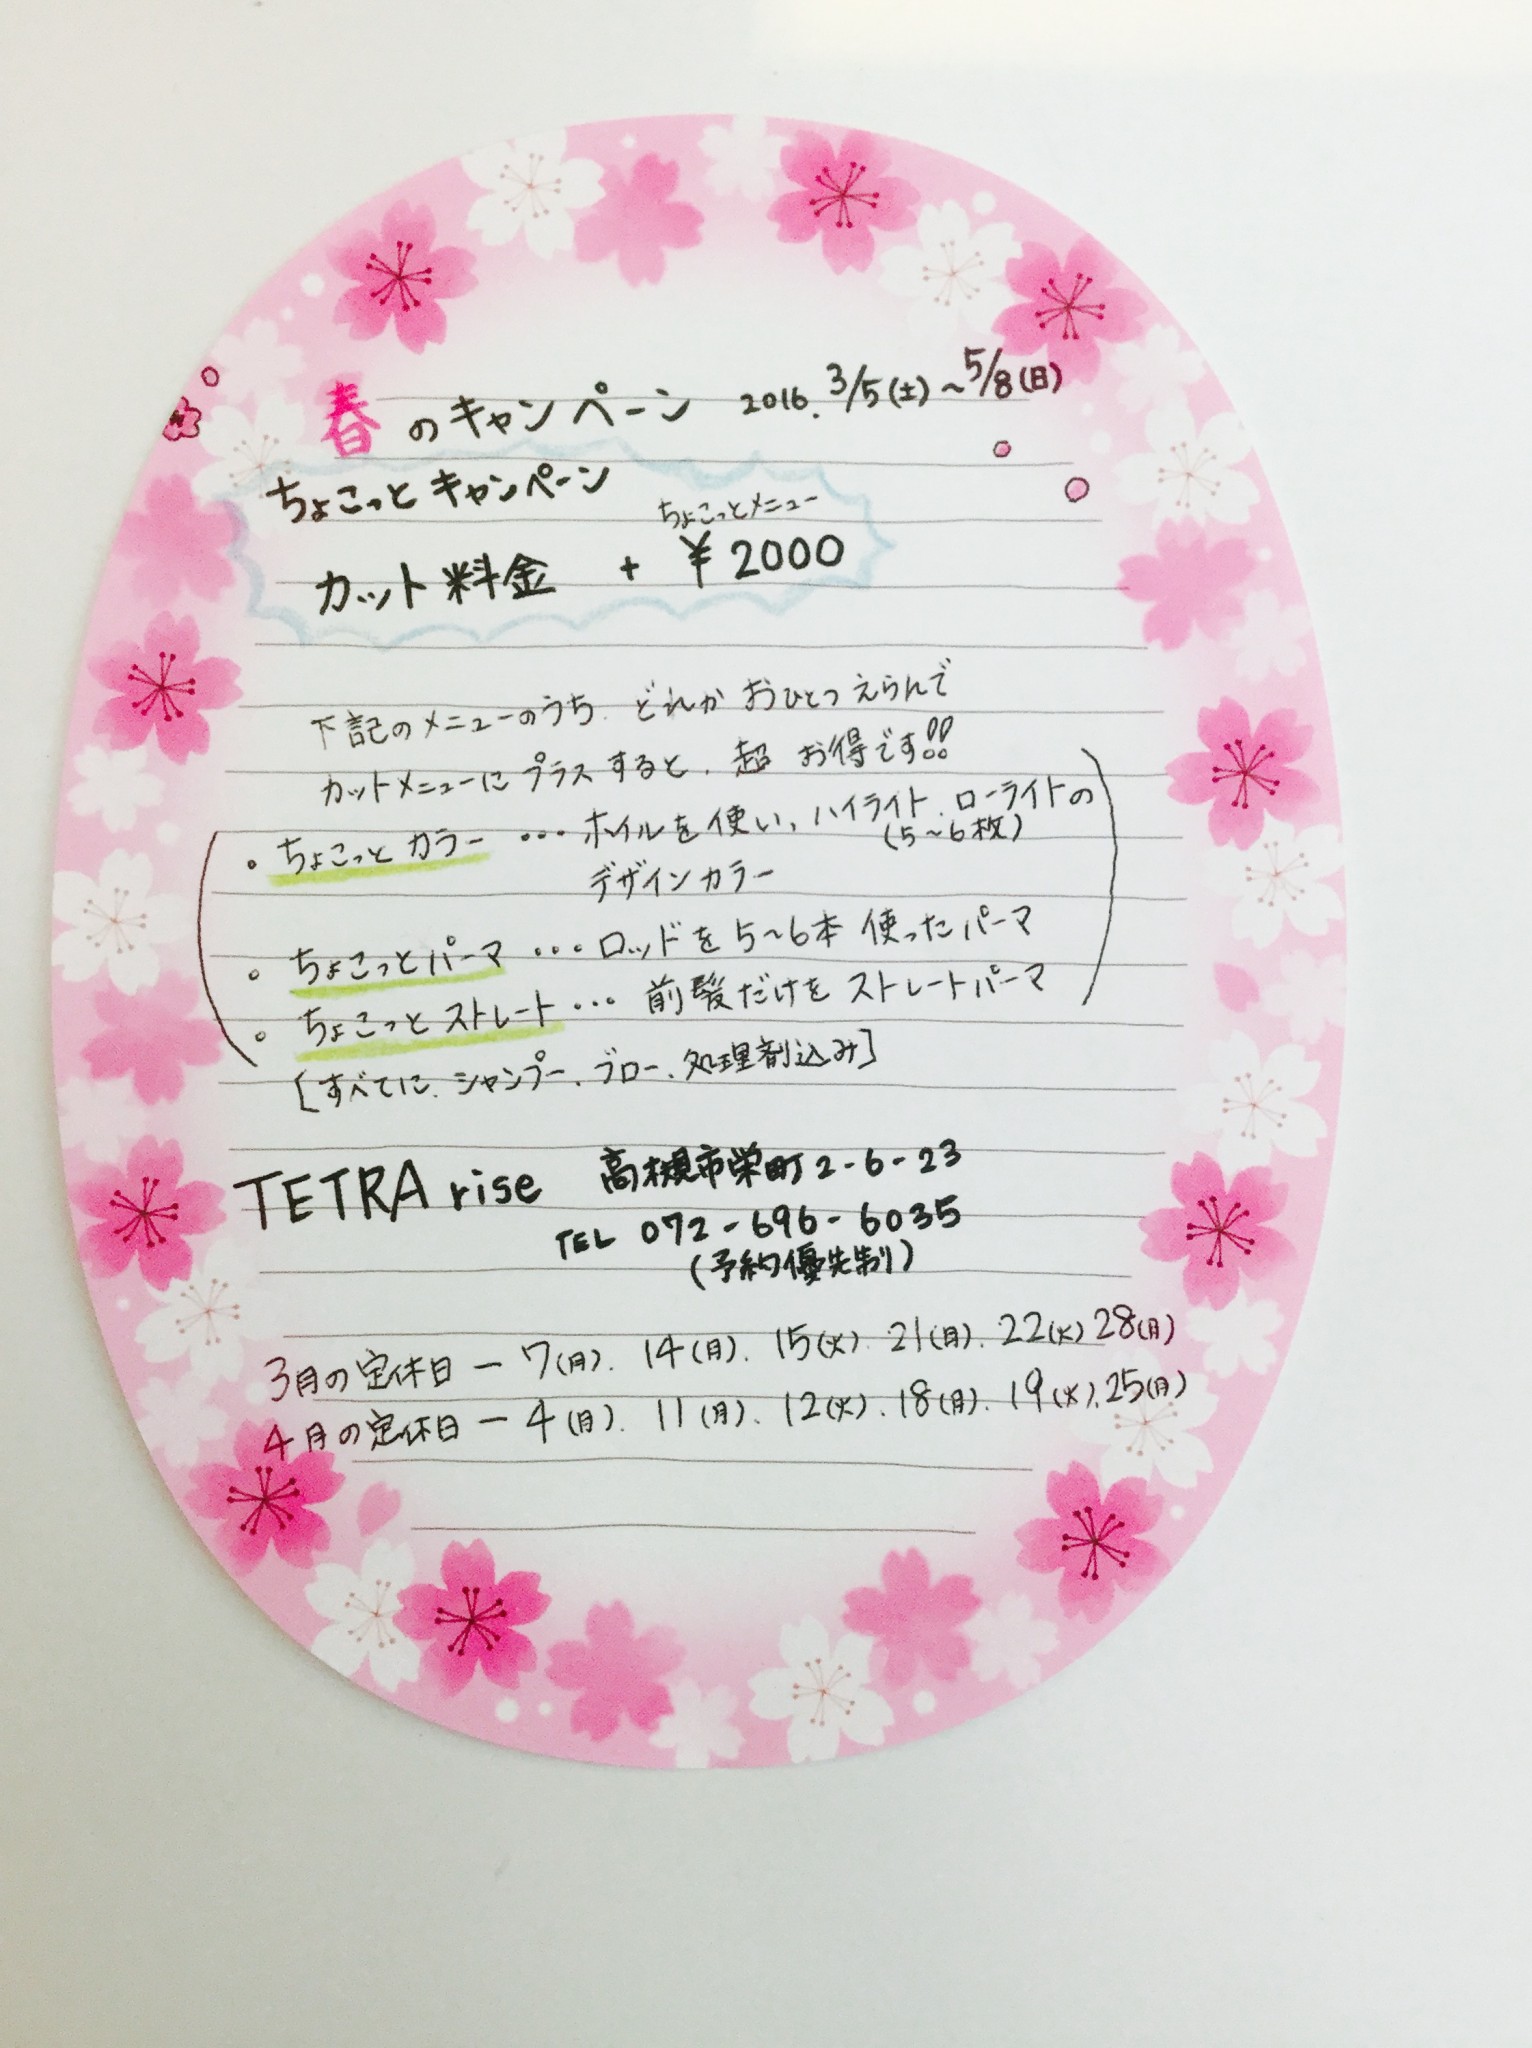 春のキャンペーン 2016. 3/5(土)~5/8(日)
ちょこっとキャンペーン
ちょこっとメニュー
カット料金 + ¥2000
下記のメニューのうち、どれかおひとつえらんで
カットメニューにプラスすると、超 お得です!!
・ちょこっとカラー …ホイルを使い、ハイライト、ローライトの
(5~6枚)
デザインカラー
・ちょこっとパーマ …ロッドを5~6本 使ったパーマ
・ちょこっとストレート… 前髪だけをストレートパーマ
[すべてに、シャンプー、ブロー、処理剤込み]
TETRA rise 高槻市栄町2-6-23
TEL 072-696-6035
(予約優先制)
3月の定休日 ー 7(月)、14(月)、15(火)、21(月)、22(火)28(月)
4月の定休日 ー 4(月)、11(月)、12(火)、18(月)、19(火)、25(月)